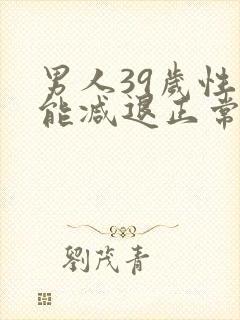 男人39歲性
能減退正常
劉茂青